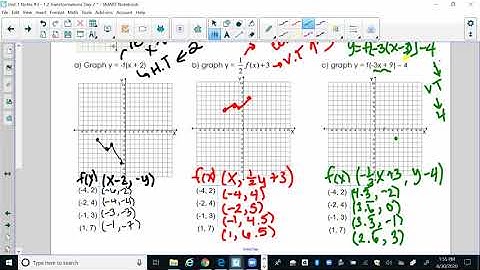 Unit 1 Notes #3 - 1.2 Transformations Day 2 * - SMART Notebook
y=f[-3(x-3)]-4
H.T ← 2
V.T
a) Graph y = -f(x + 2)
b) graph y = 1/2 f(x)+3
c) graph y = f(-3x + 9) – 4
V.T
4
f(x) (x-2, -y)
f(x) (x, 1/2y+3)
f(x) (-1/3x+3, y-4)
(-4, 2) (-6,-2)
(-4, 2) (-4, 4)
(-4, 2) (4.3, -2)
(-2, 4) (-4,-4)
(-2, 4) (-2, 5)
(-2, 4) (3.6, 0)
(-1, 3) (-3,-3)
(-1, 3) (-1, 4.5)
(-1, 3) (3.3, -1)
(1, 7) (-1,-7)
(1, 7) (1, 6.5)
(1, 7) (2.6, 3)
Type here to search
1:56 PM
8/30/2020